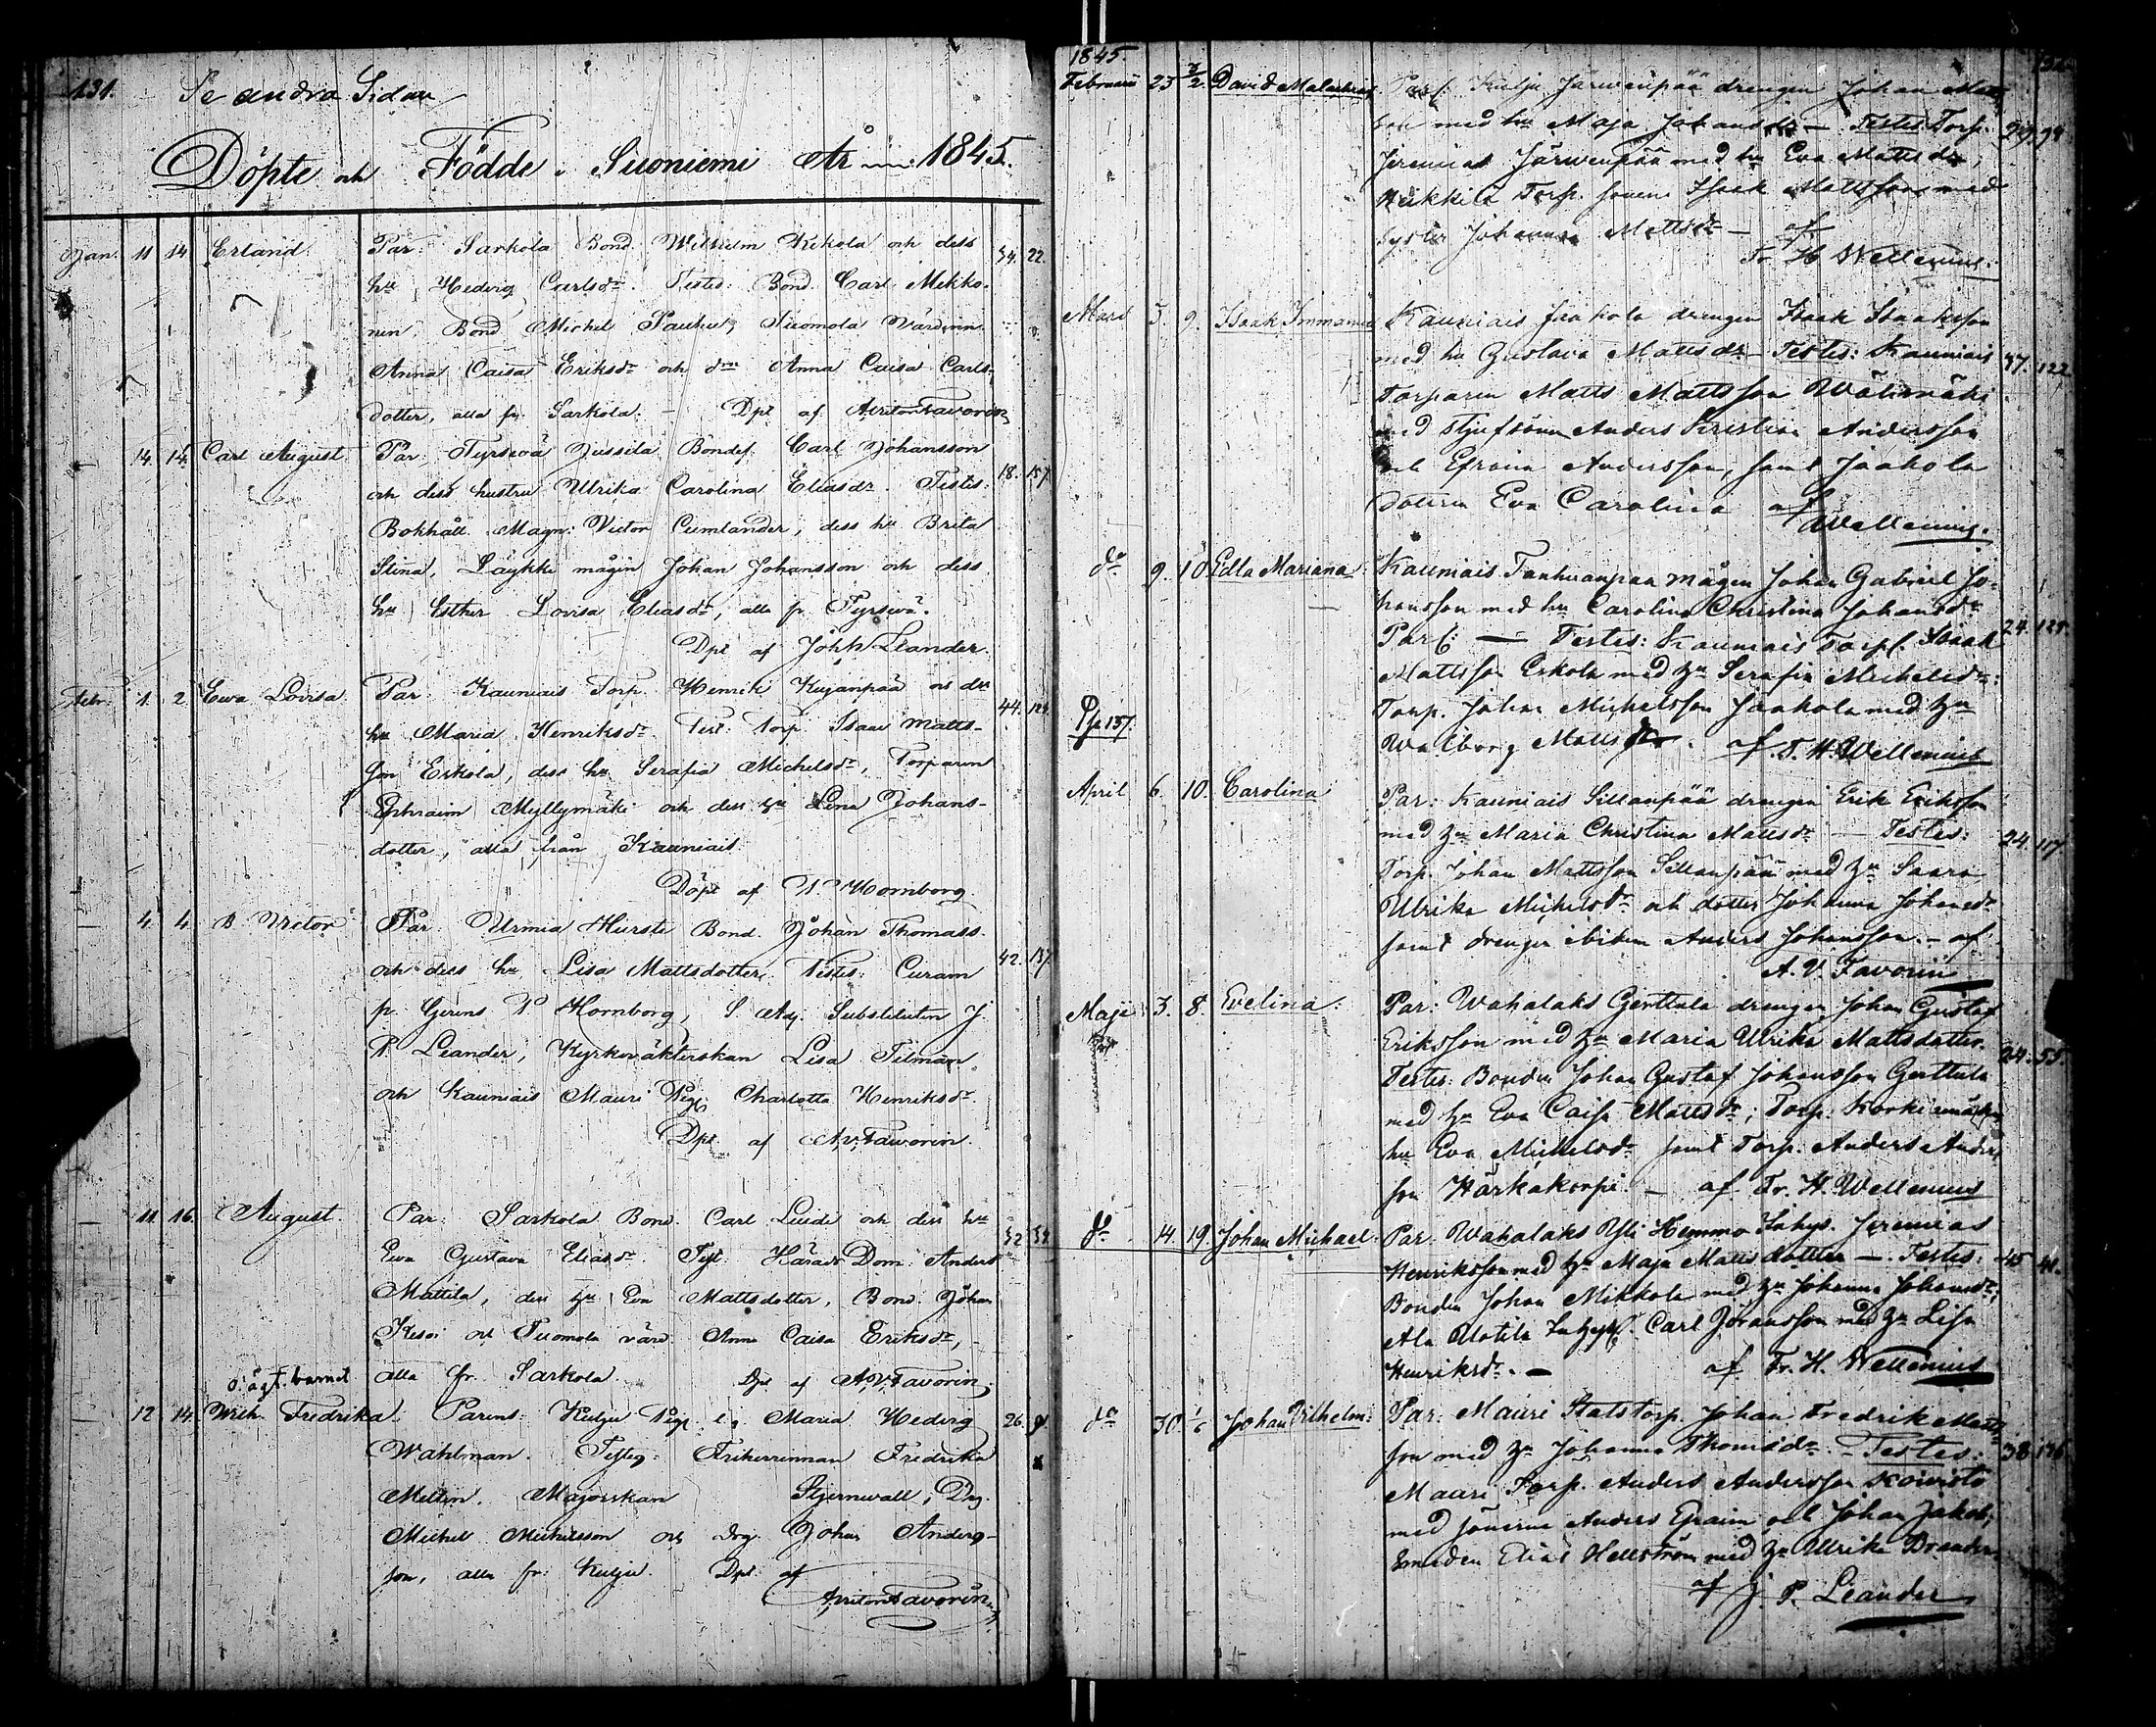 131.
Se andra Sidan
Döpte och Födde i Suoniemi År 1845.
Jan. 11 14 Erland. Par: Sarkola Bond. Wilhelm Kikola och dess 34. 22.
hu Hedvig Carlsdr. Testes: Bond. Carl Mikko-
nen, Bond Michel Tuomola Värdinn
Anna Caisa Eriksdr och Anna Caisa Carls-
dotter, alla fr. Sarkola. — Dpt af Favorin
— 14. 14. Carl August Par: Tyrsevä Jussila Bondes. Carl Johansson 18. 157
och dess hustru Ulrika Carolina Eliasdr. Testes:
Bokhåll. Magn: Victor Cumlander, dess hu Brita
Stina, Läykki mågen Johan Johansson och dess
hu Esther Lovisa Eliasdr, alla fr. Tyrsevä.
Dpt af Joh. P. Leander.
Febr: 1. 2 Ewa Lovisa Par: Kauniais Torp. Henrik Kujanpää och dess 44. 124.
hu Maria Henriksdr. Test: Torp Isaac Matts-
son Eskola, dess hu Serafia Michelsdr, Torparen
Ephraim Myllymäki och dess hu Lena Johans-
dotter, alla från Kauniais.
Döpt af P. Hornborg.
— 4. 4 B. Victor Par: Urmia Hursti Bond. Johan Thomass.
och dess hu Lisa Mattsdotter. Testes: Curam 42. 137
p. Gerens P Hornborg, S. Adj. Substituten J.
P. Leander, Kyrkoväkterskan Lisa Tilman
och Kauniais Mauri Pig. Charlotta Henriksdr.
Dpt af A.V. Favorin.
— 11. 16. August. Par: Sarkola Bond. Carl Luide och dess hu 32 34
Eva Gustava Eliasdr. Test: Härads Dom: Anders
Mattila, dess hu Eva Mattsdotter, Bond. Johan
Kesoi och Tuomola värd. Anna Caisa Eriksdr, -
alla fr. Sarkola. Dpt af A.V. Favorin.
o: ägt. barnet
— 12 14. Wilh. Fredrika. Parens: Kulju Pig. Maria Hedvig 26. 9
Wahlman. Testes: Friherrinnan Fredrika
Mellin, Majorskan Stjernvall, Drg.
Michel Michelsson och drg. Johan Anders-
son, alla fr: Kulju. Dpt. af
Favorin
1845.
Februarii 23 David Malachias Par: Kulju Järwenpää drengen Johan Matts
son med hu Maja Johansdr — Testes Torp. 29. 74
Jeremias Järwenpää med hu Eva Mattsdr,
Heikkilä Torp. sonen Isaak Mattsson med
syster Johanna Mattsdr — af
Fr. H Wellenius.
Mars 5 9. Isaak Immanuel Kauniais Jaakola drengen Isaak Isaaksson
med hu Gustava Mattsdr — Testes: Kauniais 47. 122
Torparen Matts Mattsson Wähämäki
med styfsönen Anders Kristian Andersson
och Efraim Andersson, samt Jaakola
dottren Eva Carolina af
Wellenius.
do 9. 10 Edla Mariana. Kauniais Tanhuanpaa mågen Johan Gabriel Jo-
hansson med hu Carolina Christina Johansdr
Par: — Testes: Kauniais Torp. Isaak 24. 121.
Mattsson Eskola med hu Serafia Michelsdr:
Torp. Johan Michelsson Jaakola med hu
Walborg Mattsdr. af F. H. Wellenius
137.
April 6. 10. Carolina Par: Kauniais Sillanpää drengen Erik Eriksson
med hu Maria Christina Mattsdr — Testes: 24. 117.
Torp. Johan Mattsson Sillanpää med hu Saara
Ulrika Michelsdr och dotter Johanna Johansdr
samt drengen ibidem Anders Johansson. - af
A. V. Favorin
Maji 3. 8. Evelina: Par: Wahalaks Gerttula drengen Johan Gustaf
Eriksson med hu Maria Ulrika Mattsdotter. 24. 55.
Testes: Bonden Johan Gustaf Johansson Gerttula
med hu Eva Caisa Mattsdr; Torp. Korkiamäki
hu Eva Michelsdr samt Torp. Anders Anders
son Härkäkorpi. — af Fr. H. Wellenius
do 14. 19. Johan Michael: Par. Wahalaks Yli Hemmo Inhys. Jeremias
Henriksson med hu Maja Mattsdotter — Testes: 45 41.
Bonden Johan Mikkola med hu Johanna Johansdr;
Ala Uotila Inhys. Carl Johansson med hu Lisa
Henriksdr. — af Fr. H. Wellenius
do 30. 1/6 Johan Vilhelm: Par: Mauri Statstorp. Johan Fredrik Matts
son med hu Johanna Thomasdr. Testes: 38 136
Mauri Torp. Anders Andersson Koivisto
med sönerne Anders Efraim och Johan Jakob,
Smeden Elias Hellström med hu Ulrika Brander
af J. P. Leander